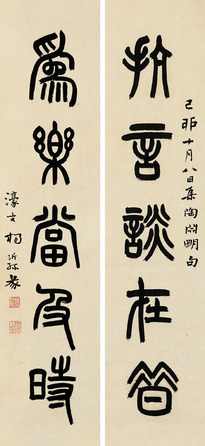 己卯十月八日集陶淵明句
抗言談在昔
爲樂當及時
濠叟楊沂孫篆